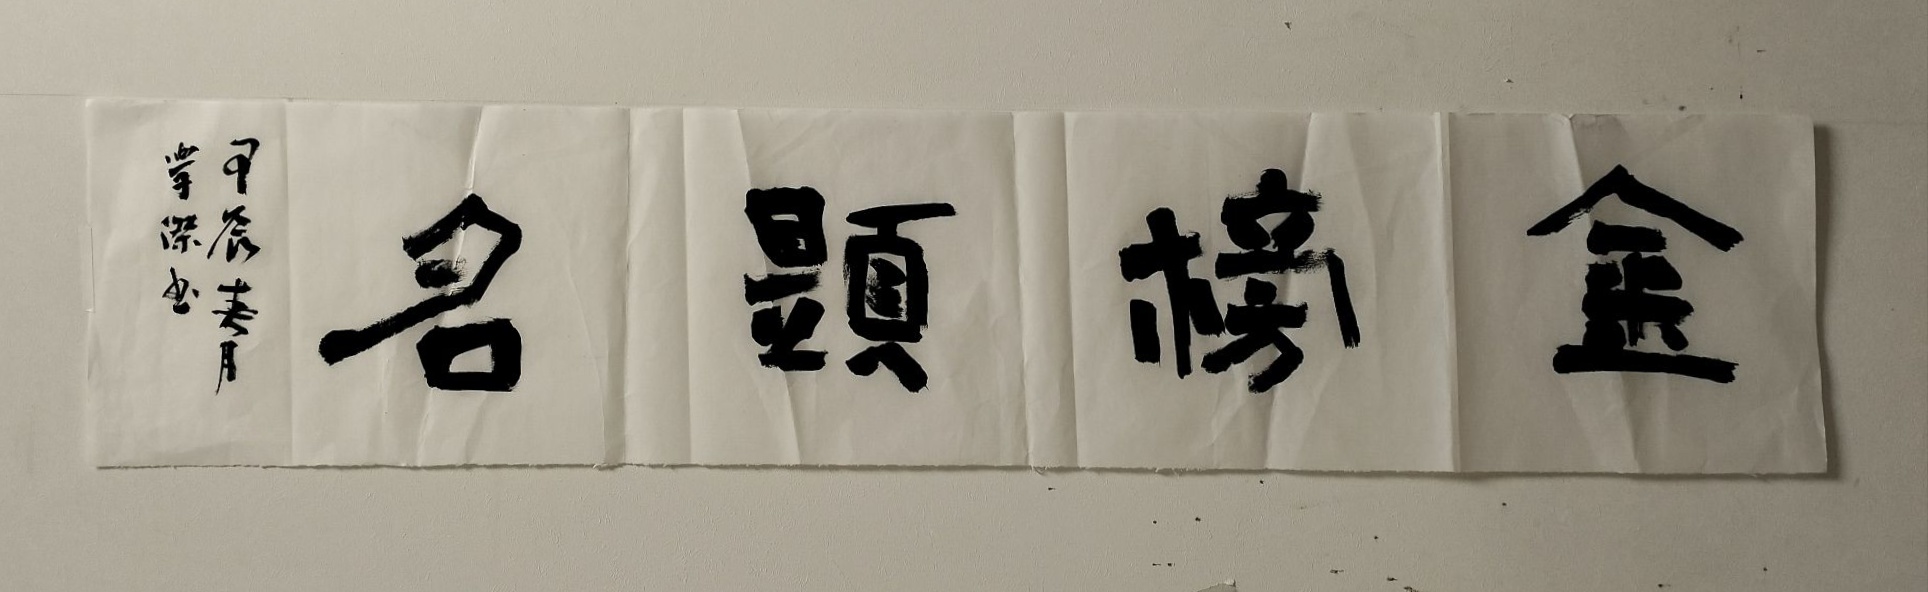 金榜題名
甲辰春月
學傑書